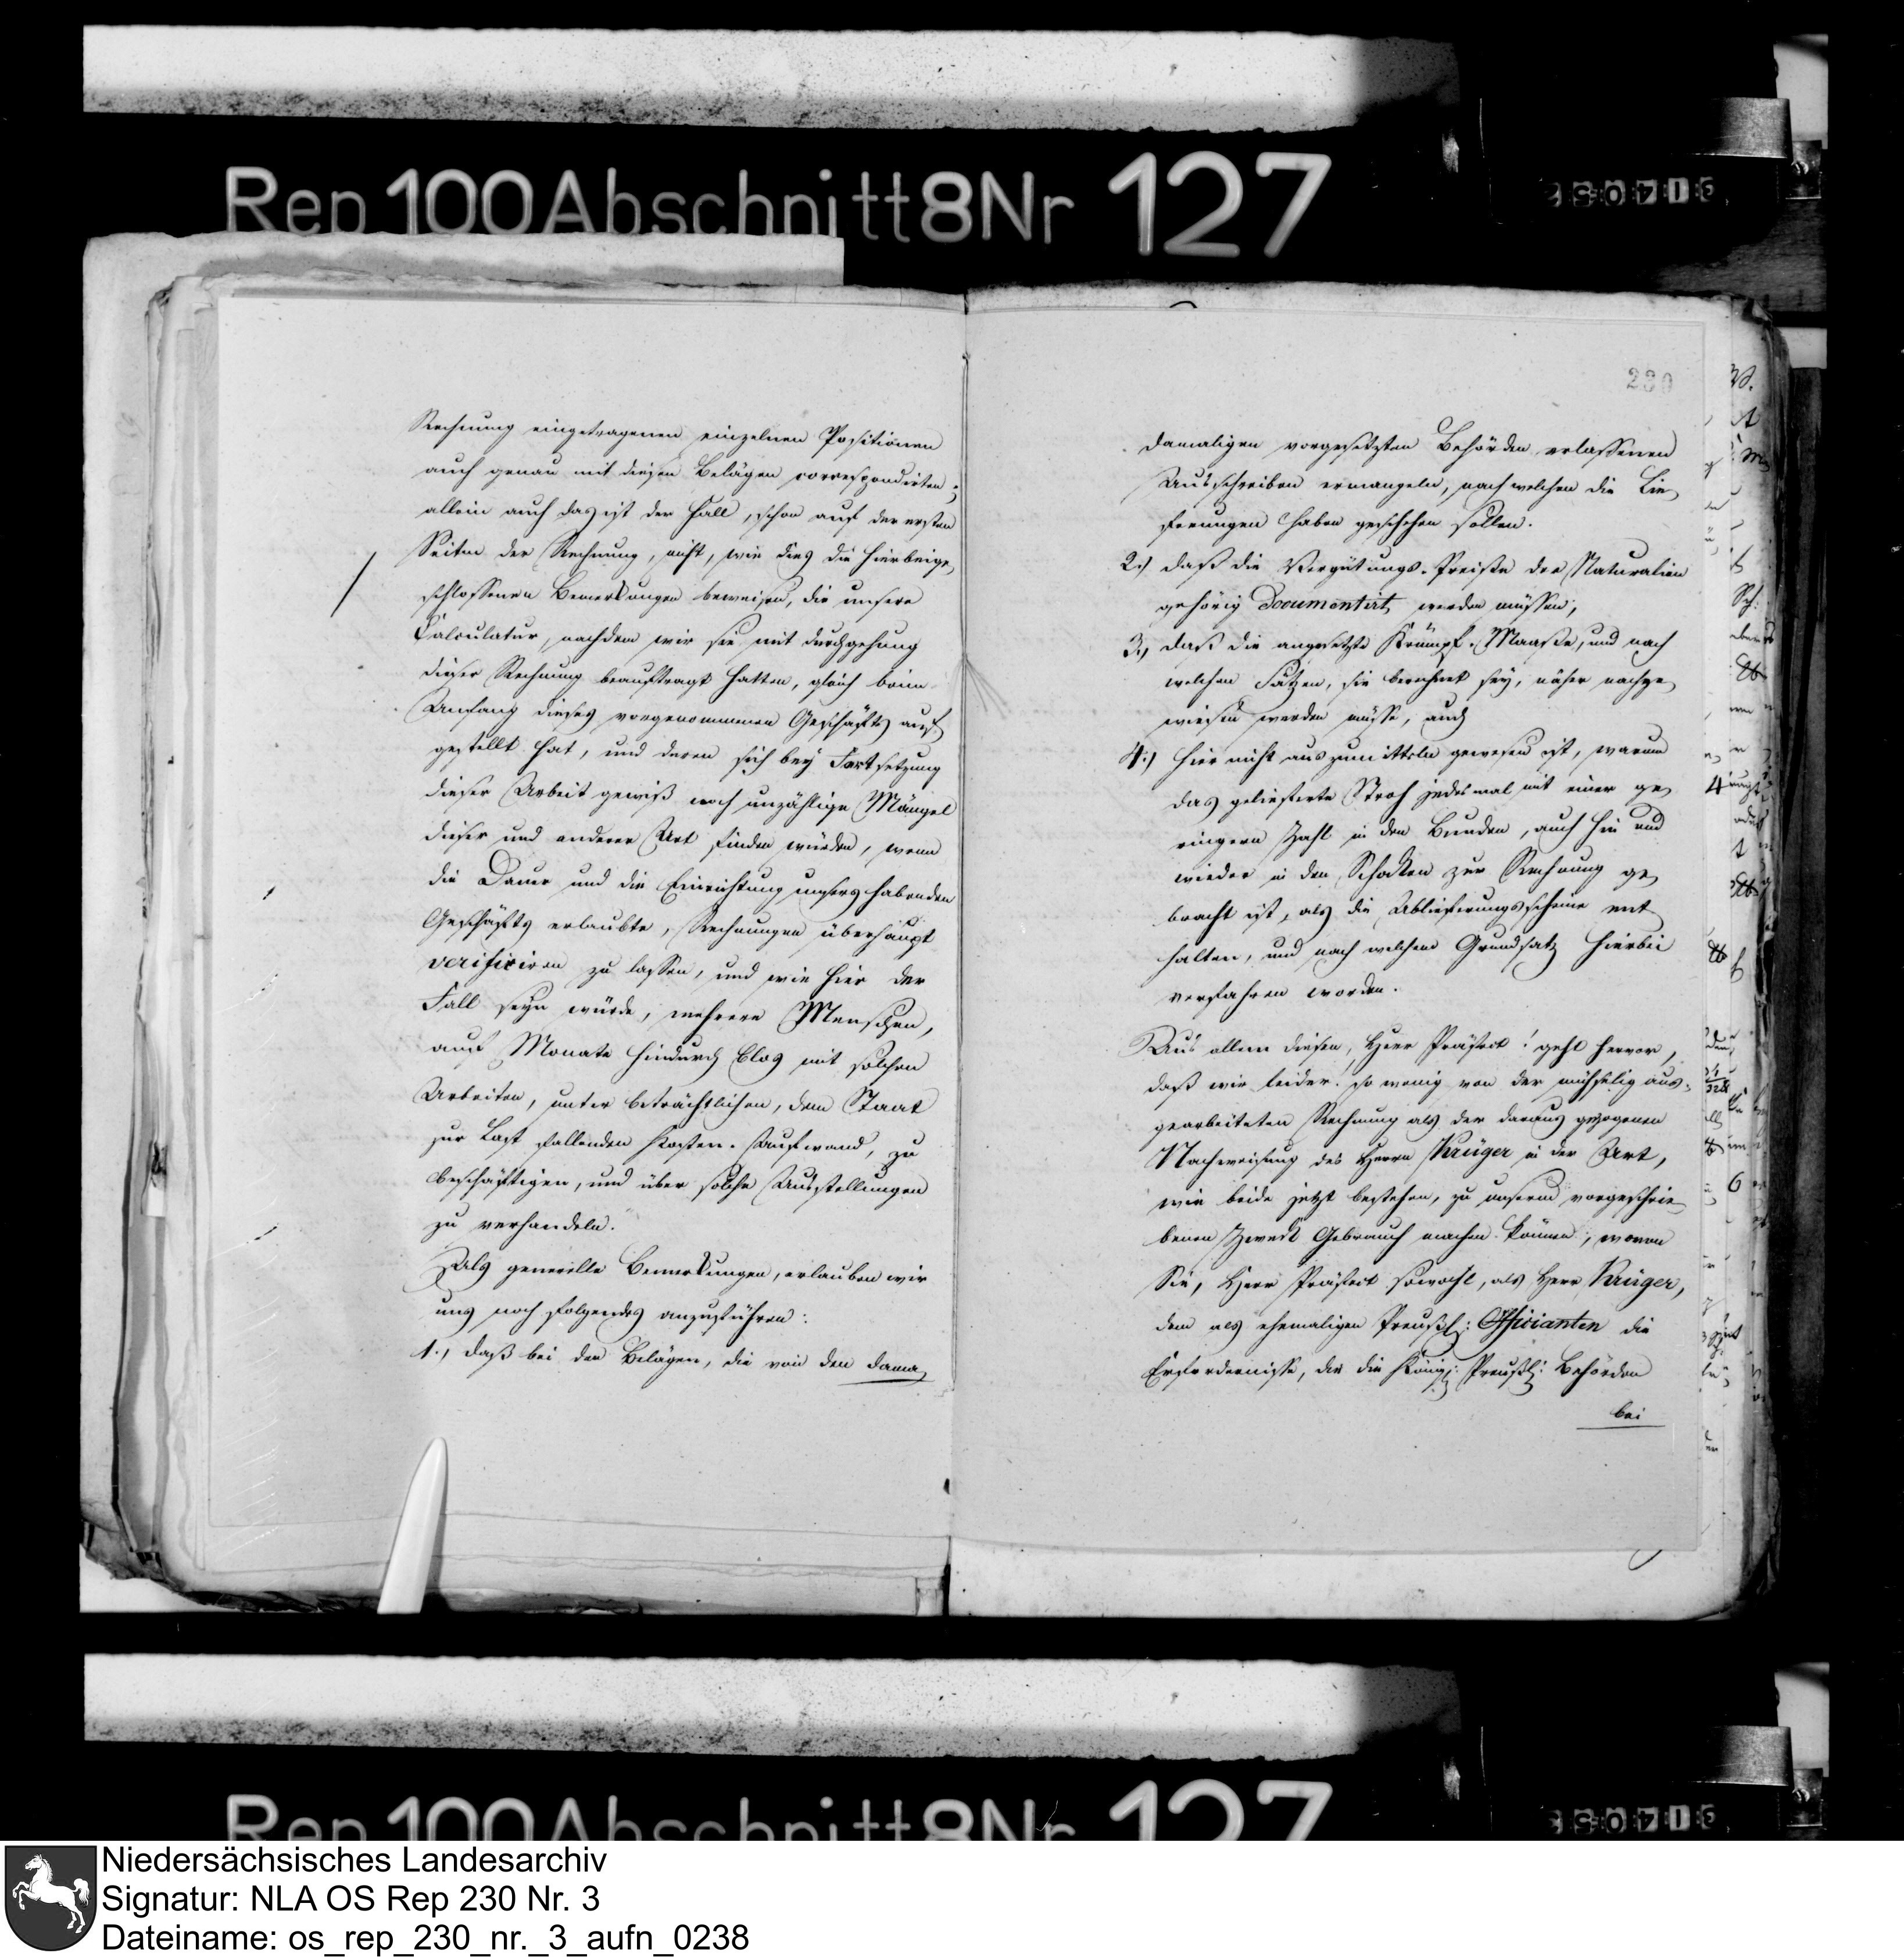 Rep 100 Abschnitt 8 Nr 127
Rechnung eingetragenen einzelnen Positionen
auch genau mit diesen Belägen correspondirten;
allein auch das ist der Fall, schon auf der ersten
Seiten der Rechnung, nicht, wie dies die hierbeige,
schlossenen Bemerkungen beweisen, die unsere
Calculatur, nachdem wir sie mit Durchgehung
dieser Rechnung beauftragt hatten, gleich beim
Anfang dieses vorgenommenen Geschäfts auf,
gestellt hat, und deren sich bey Fortsetzung
dieser Arbeit gewiß noch unzählige Mängel
dieser und anderer Art finden würden, wenn
die Dauer und die Einrichtung unsers habenden
Geschäfts erlaubte, Rechnungen überhaupt
verificiren zu lassen, und wie hier der
Fall seyn würde, mehrere Menschen,
auf Monate hindurch blos mit solchen
Arbeiten, unter beträchtlichen, dem Staat
zur Last fallenden Kosten-Aufwand, zu
beschäftigen, und über solche Ausstellungen
zu verhandeln.
Als generelle Bemerkungen, erlauben wir
uns noch folgendes anzuführen:
1., daß bei den Belägen, die von den dama,
230
damaligen vorgesetzten Behörden erlassenen
Ausschreiben ermangeln, nach welchen die Lie,
ferungen haben geschehen sollen.
2.) daß die Vergütungs-Preiße der Naturalien
gehörig Documentirt werden müssen;
3., daß die angesetzte Krümpf-Maaße, und nach
welchen Sätzen, sie berechnet sey, näher nachge,
wiesen werden müsse, auch
4.) hier nicht auszumitteln gewesen ist, warum
das gelieferte Stroh jedesmal mit einer ge,
ringern Zahl in den Bunden, auch hin und
wieder in den Schocken zur Rechnung ge,
bracht ist, als die Ablieferungsscheine ent,
halten, und nach welchem Grundsatz hierbei
verfahren worden.
Aus allem diesen, Herr Präfect! geht hervor,
daß wir leider! so wenig von der mühselig aus-
gearbeiteten Rechnung als der daraus gezogenen
Nachweisung des Herrn Krüger in der Art,
wie beide jetzt bestehen, zu unserm vorgeschrie,
benen Zweck Gebrauch machen können, wovon
Sie, Herr Präfect sowohl, als Herr Krüger,
dem als ehemaligen Preußl: Officianten die
Erfordernisse, die die Königl: Preußl: Behörden
bei
Rep 100 Abschnitt 8 Nr 127
Niedersächsisches Landesarchiv
Signatur: NLA OS Rep 230 Nr. 3
Dateiname: os_rep_230_nr._3_aufn_0238